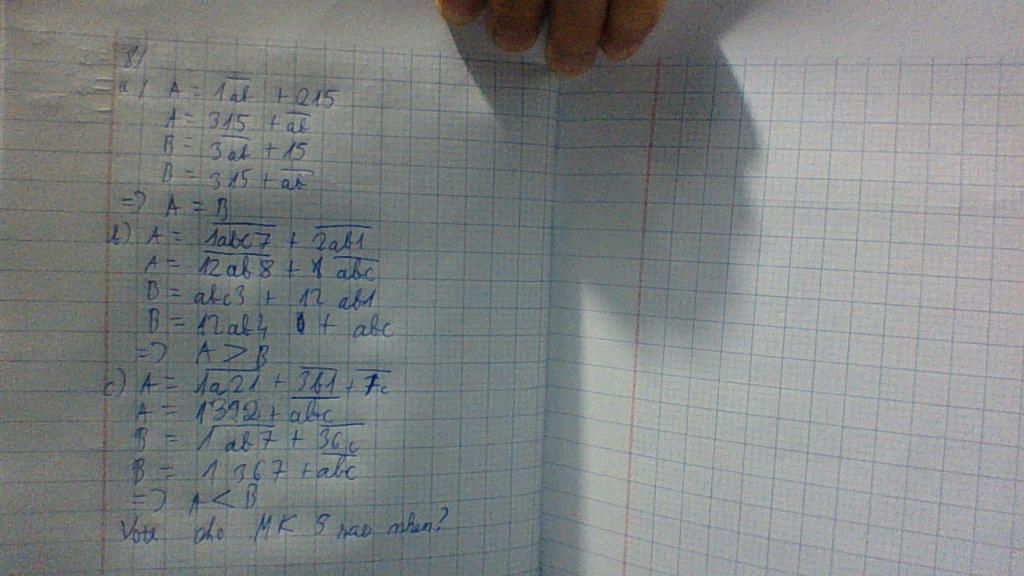 8/
a) A = 1ab + 215
A = 315 + ab
B = 3ab + 15
B = 315 + ab
=> A = B
b) A = 1abc7 + 2ab1
A = 12ab8 + abc
B = abc3 + 12ab1
B = 12ab4 + abc
=> A > B
c) A = 1a21 + 3b1 + 7c
A = 1392 + abc
B = 1ab7 + 36c
B = 1367 + abc
=> A < B
Vote cho MK 5 sao nhen?